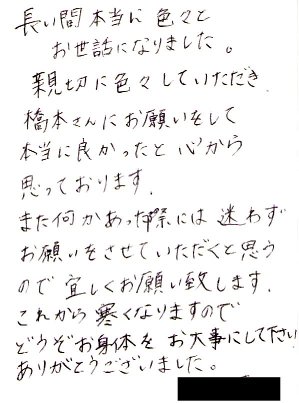 長い間本当に色々と
お世話になりました。
親切に色々していただき
橋本さんにお願いをして
本当に良かったと心から
思っております.
また何かあった際には迷わず
お願いをさせていただくと思う
ので宜しくお願い致します.
これから寒くなりますので
どうぞお身体をお大事にして下さい
ありがとうございました。